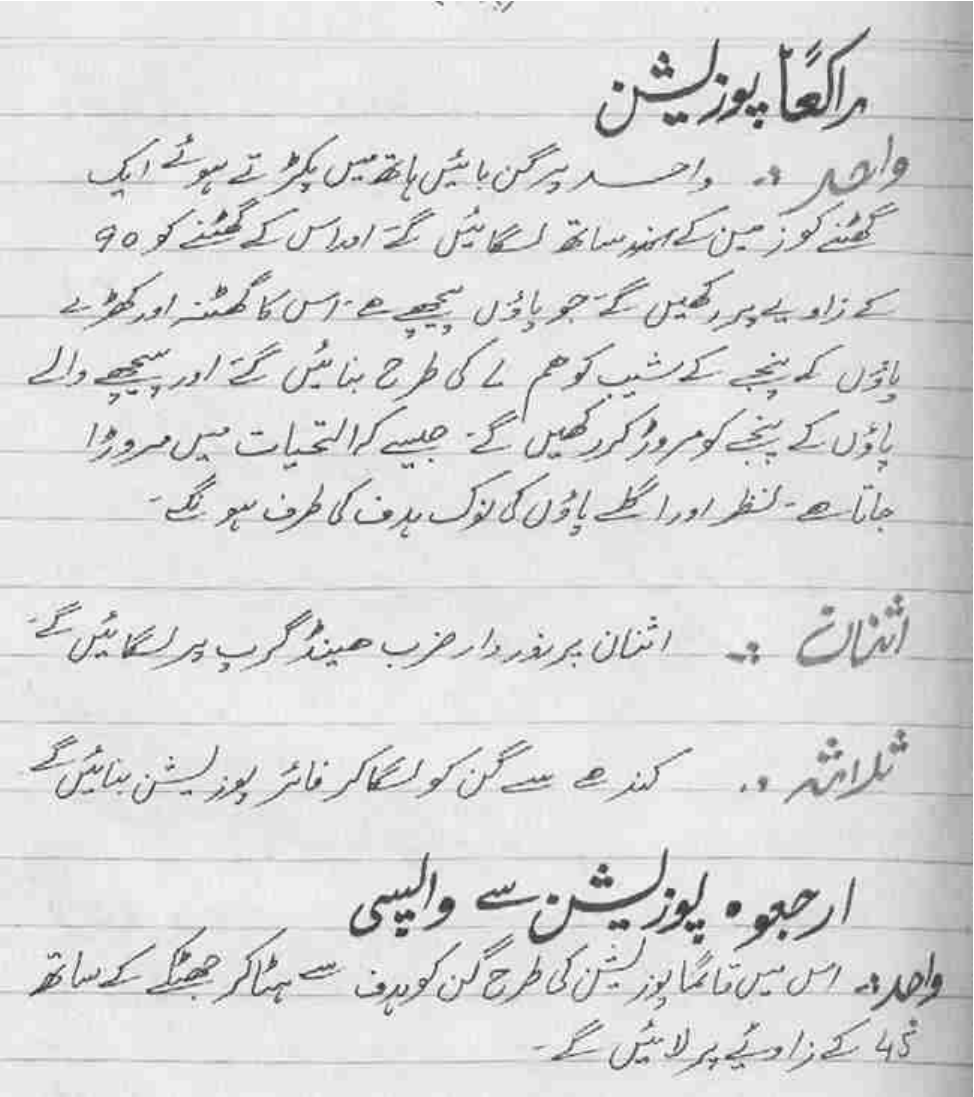 راکعاً پوزلیشن
واحد :۔ واحد پر گن بائیں ہاتھ میں پکڑتے ہوئے ایک
گھٹنے کو زمین کے ساتھ لگائیں گے اور اس کے گھٹنے کو 90
کے زاویے پر رکھیں گے۔ جو پاؤں پیچھے ھے۔ اس کا گھٹنہ اور کھڑے
پاؤں کے پنجے کے شیپ کو ھم L کی طرح بنائیں گے اور پیچھے والے
پاؤں کے پنجے کو مروڑ کر رکھیں گے۔ جیسے کہ التحیات میں مروڑا
جاتا ھے۔ نظر اور اگلے پاؤں کی نوک ہدف کی طرف ہونگے۔
اثنان :۔ اثنان پر زور دار ضرب ھینڈ گرپ پر لگائیں گے۔
ثلاثہ :۔ کندھے سے گن کو لگا کر فائر پوزلیشن بنائیں گے
ارجعوہ پوزلیشن سے واپسی
واحد :۔ اس میں قائماً پوزلیشن کی طرح گن کو ہدف سے ہٹا کر جھٹکے کے ساتھ
45 کے زاوئیے پر لائیں گے۔